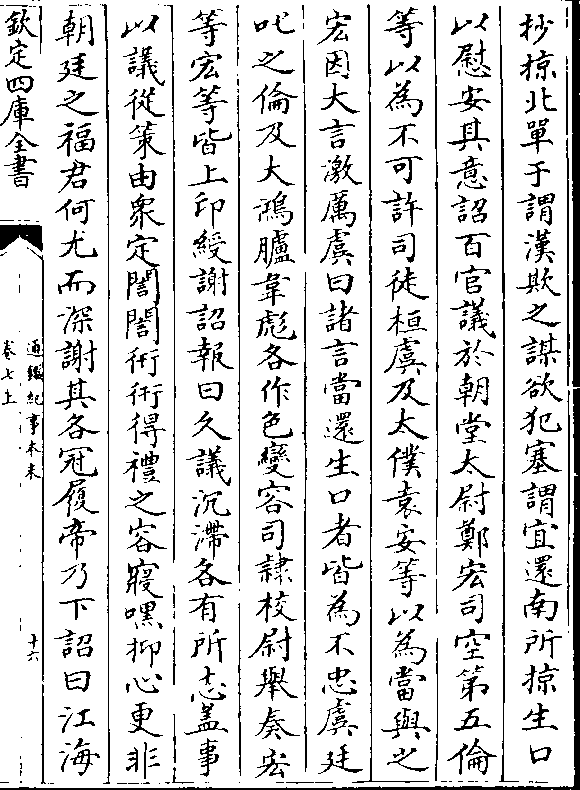 抄掠北單于謂漢欺之謀欲犯塞謂宜還南所掠生口
以慰安其意詔百官議於朝堂太尉鄭宏司空第五倫
等以為不可許司徒桓虞及太僕袁安等以為當與之
宏因大言激厲虞曰諸言當還生口者皆為不忠虞廷
叱之倫及大鴻臚韋彪各作色變容司隸校尉舉奏宏
等宏等皆上印綬謝詔報曰久議沉滯各有所志蓋事
以議從策由衆定誾誾衎衎得禮之容寢嘿抑心更非
朝廷之福君何尤而深謝其各冠履帝乃下詔曰江海
欽定四庫全書
通鑑紀事本末
卷七上
十六